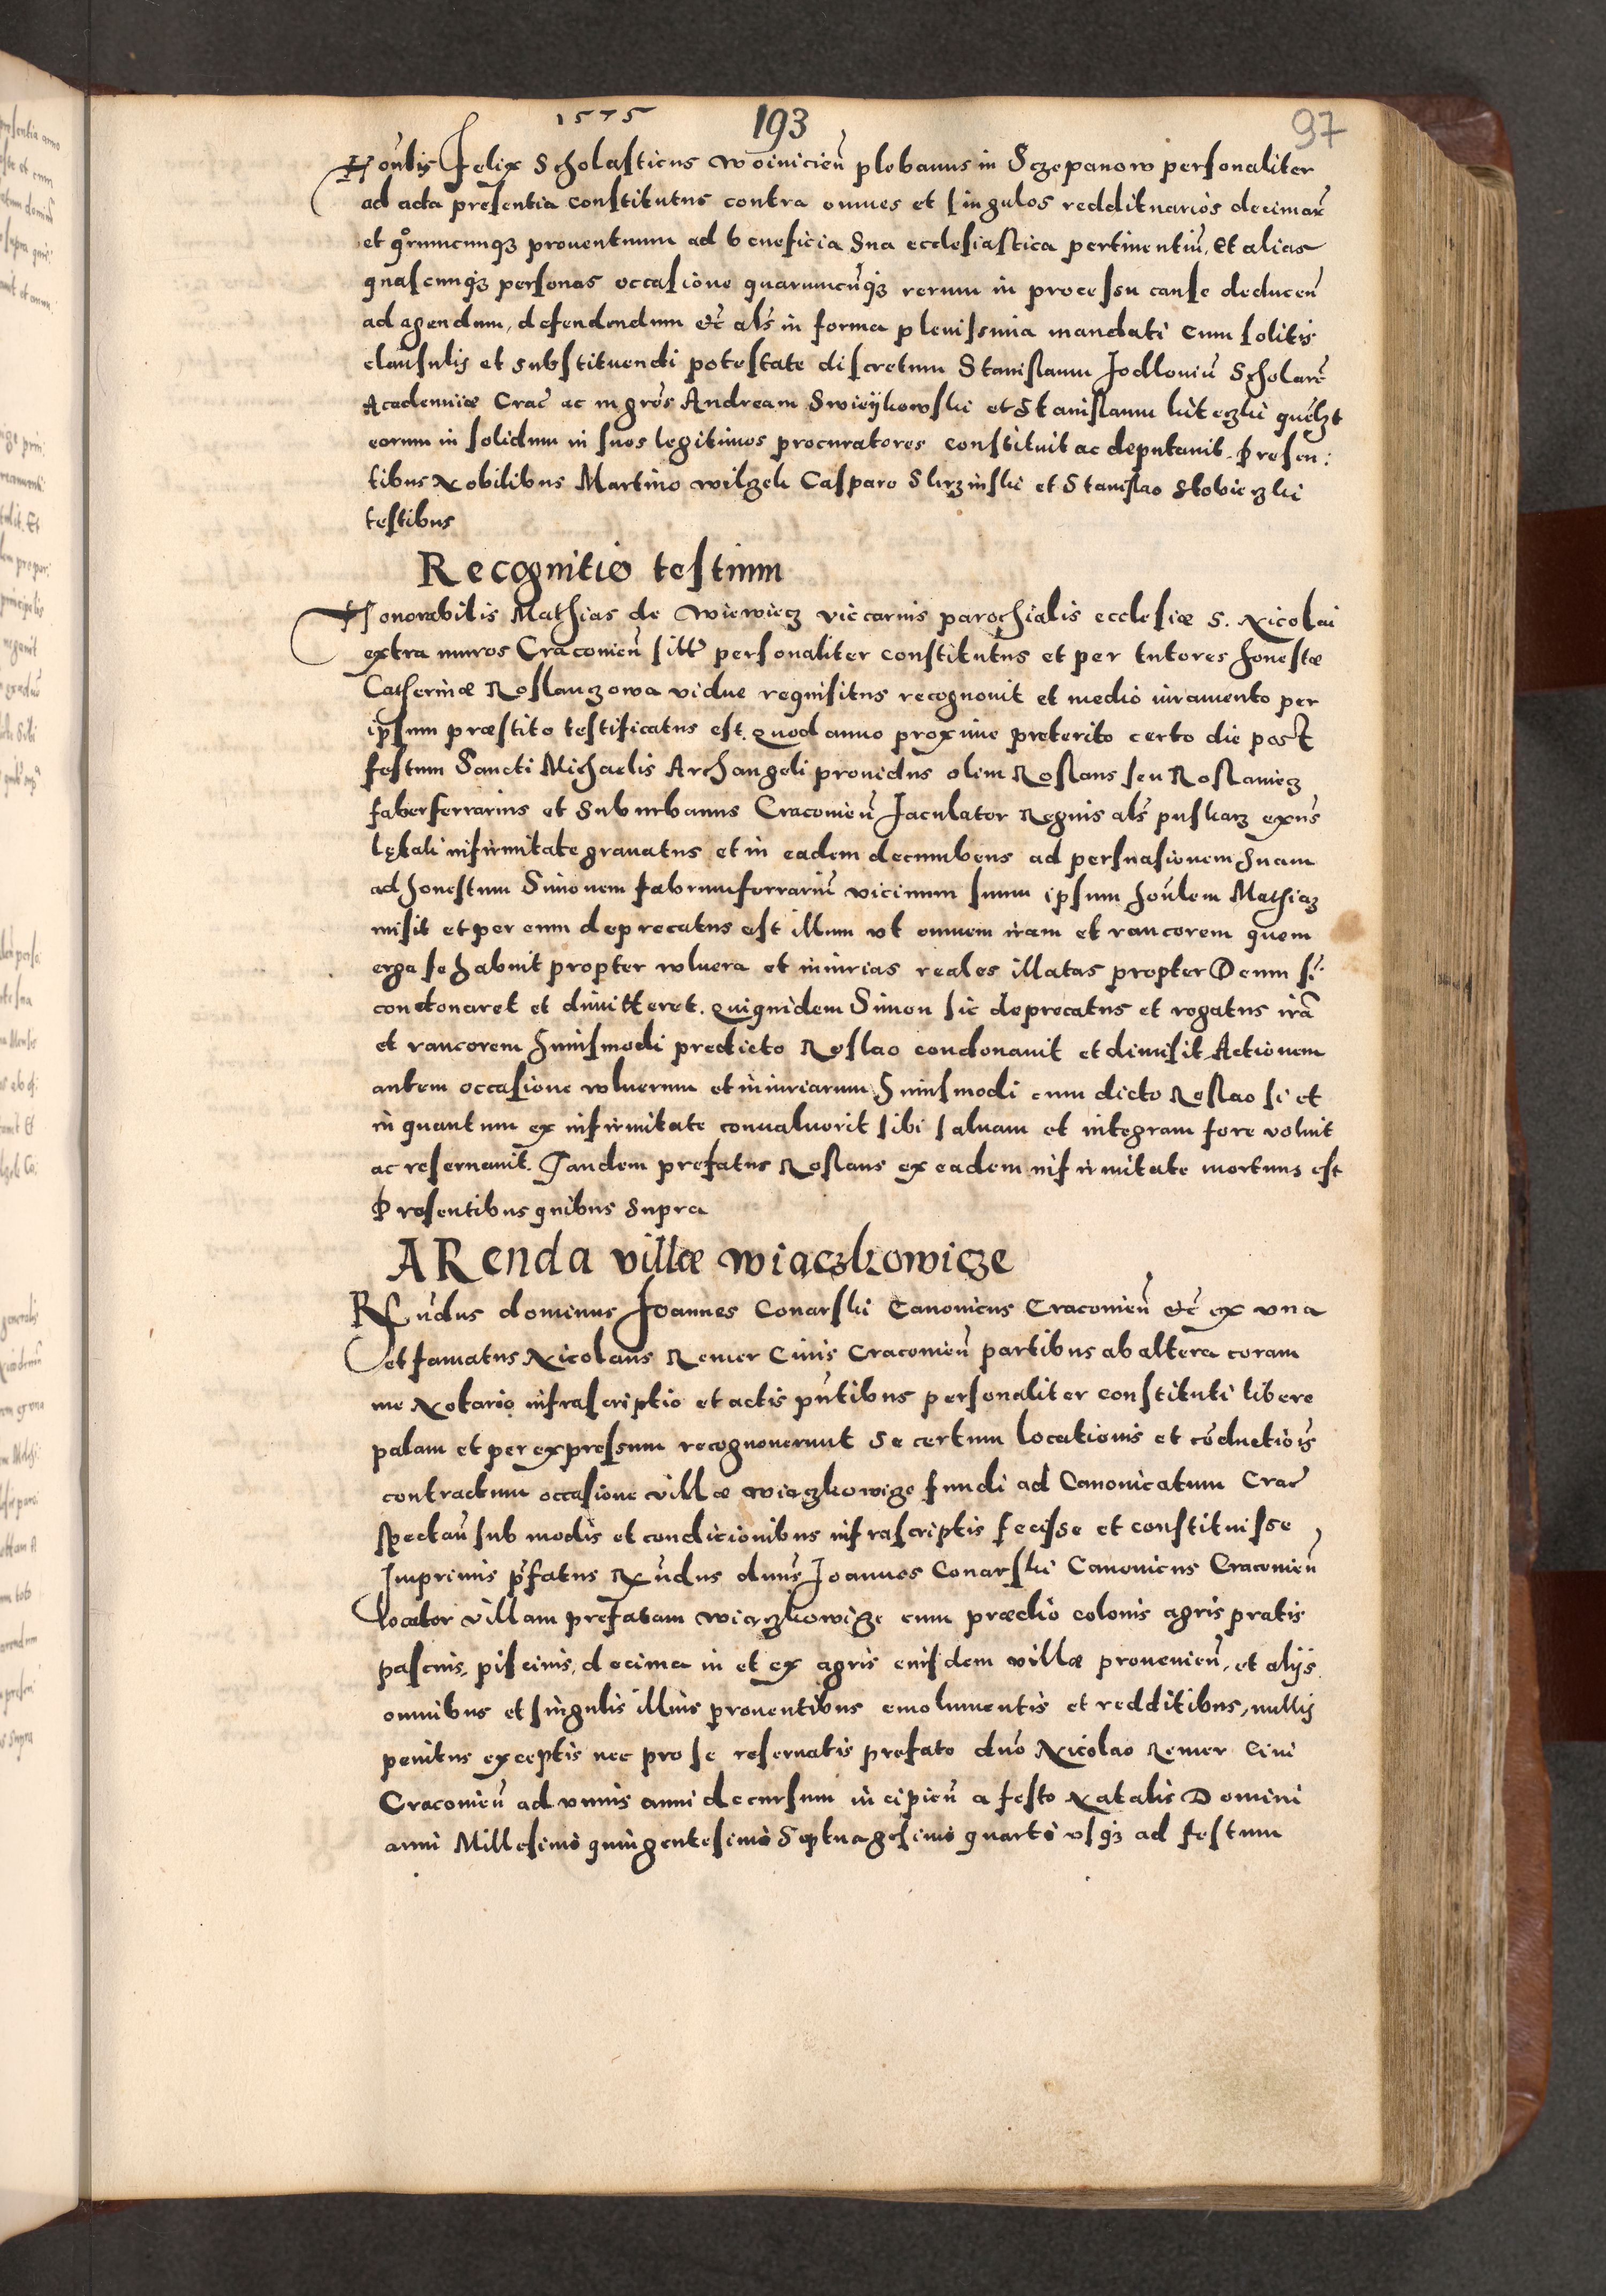 1575 193 97
Honlis Felix Scholasticus Woinicien plebanus in Sczepanow personaliter
ad acta presentia constitutus contra omnes et singulos reddituarios decimar
et qrumcunqz prouentuum ad beneficia sua ecclesiastica pertinentiu, Et alias
quascunqz personas occasione quarumcuqz rerum in processu cause deducen
ad agendum, defendendum etc als in forma plenissima mandati cum solitis
clausulis et substituendi potestate discretum Stanislaum Jodlouiu Scholare
Academiæ Crac ac mgros Andream Swieÿkowski et Stanislaum
eorum in solidum in suos legitimos procuratores constituit ac deputauit. Presen:
tibus Nobilibus Martino wilgek Casparo Skrzinski et Stanislao
testibus
Recognitio testium
Honorabilis Mathias de Wiewiecz viccarius parochialis ecclesiæ S. Nicolai
extra muros Cracouien sitt personaliter constitutus et per tutores honestæ
Catherinæ Roslanczowa vidue requisitus recognouit et medio iuramento per
ipsum præstito testificatus est. quod anno proxime preterito certo die post
festum Sancti Michaelis Archangeli prouidus olim Roslaus seu Roslaniecz
faberferrarius et suburbanus Cracouien Jaculator Regius als puskarz exns
letali infirmitate grauatus et in eadem decumbens ad persuasionem suam
ad honestum Simonem fabrumferrariu vicinum suum ipsum honlem Mathiaz
misit et per eum deprecatus est illum vt omnem iram et rancorem quem
erga se habuit propter wlnera et iniurias reales illatas propter Deum si:
condonaret et dimitteret. quiquidem Simon sic deprecatus et rogatus ira
et rancorem huiusmodi predicto Roslao condonauit et dimisit Actionem
autem occasione wlnerum et iniuriarum huiusmodi cum dicto Roslao si et
in quantum ex infirmitate conualuerit sibi saluam et integram fore voluit
ac reseruauit. Tandem prefatus Roslaus ex eadem infirmitate mortuus est
Presentibus quibus supra
ARenda villæ wiaczkowicze
Rndus dominus Joannes Conarski Canonicus Cracouien etc ex vna
et famatus Nicolaus Remer Ciuis Cracouien partibus ab altera coram
me Notario infrascriptio et actis pntibus personaliter constituti libere
palam et per expressum recognouerunt se certum locationis et coductiois
contractum occasione villæ wiaczkowicze fundi ad Canonicatum Crac
spectan sub modis et condicionibus infrascriptis fecisse et constituisse
Imprimis pfatus Rndus dnus Joannes Conarski Canonicus Cracouien
locator villam prefatam wiaczkowicze cum prædio colonis agris pratis
pascuis, piscinis, decima in et ex agris eiusdem villæ prouenien, et alijs
omnibus et singulis illius prouentibus emolumentis et redditibus, nullis
penitus exceptis nec pro se reseruatis prefato dno Nicolao Remer Ciui
Cracouien ad vnius anni decursum incipien a festo Natalis Domini
anni Millesimo quingentesimo Septuagesimo quarto vsqz ad festum